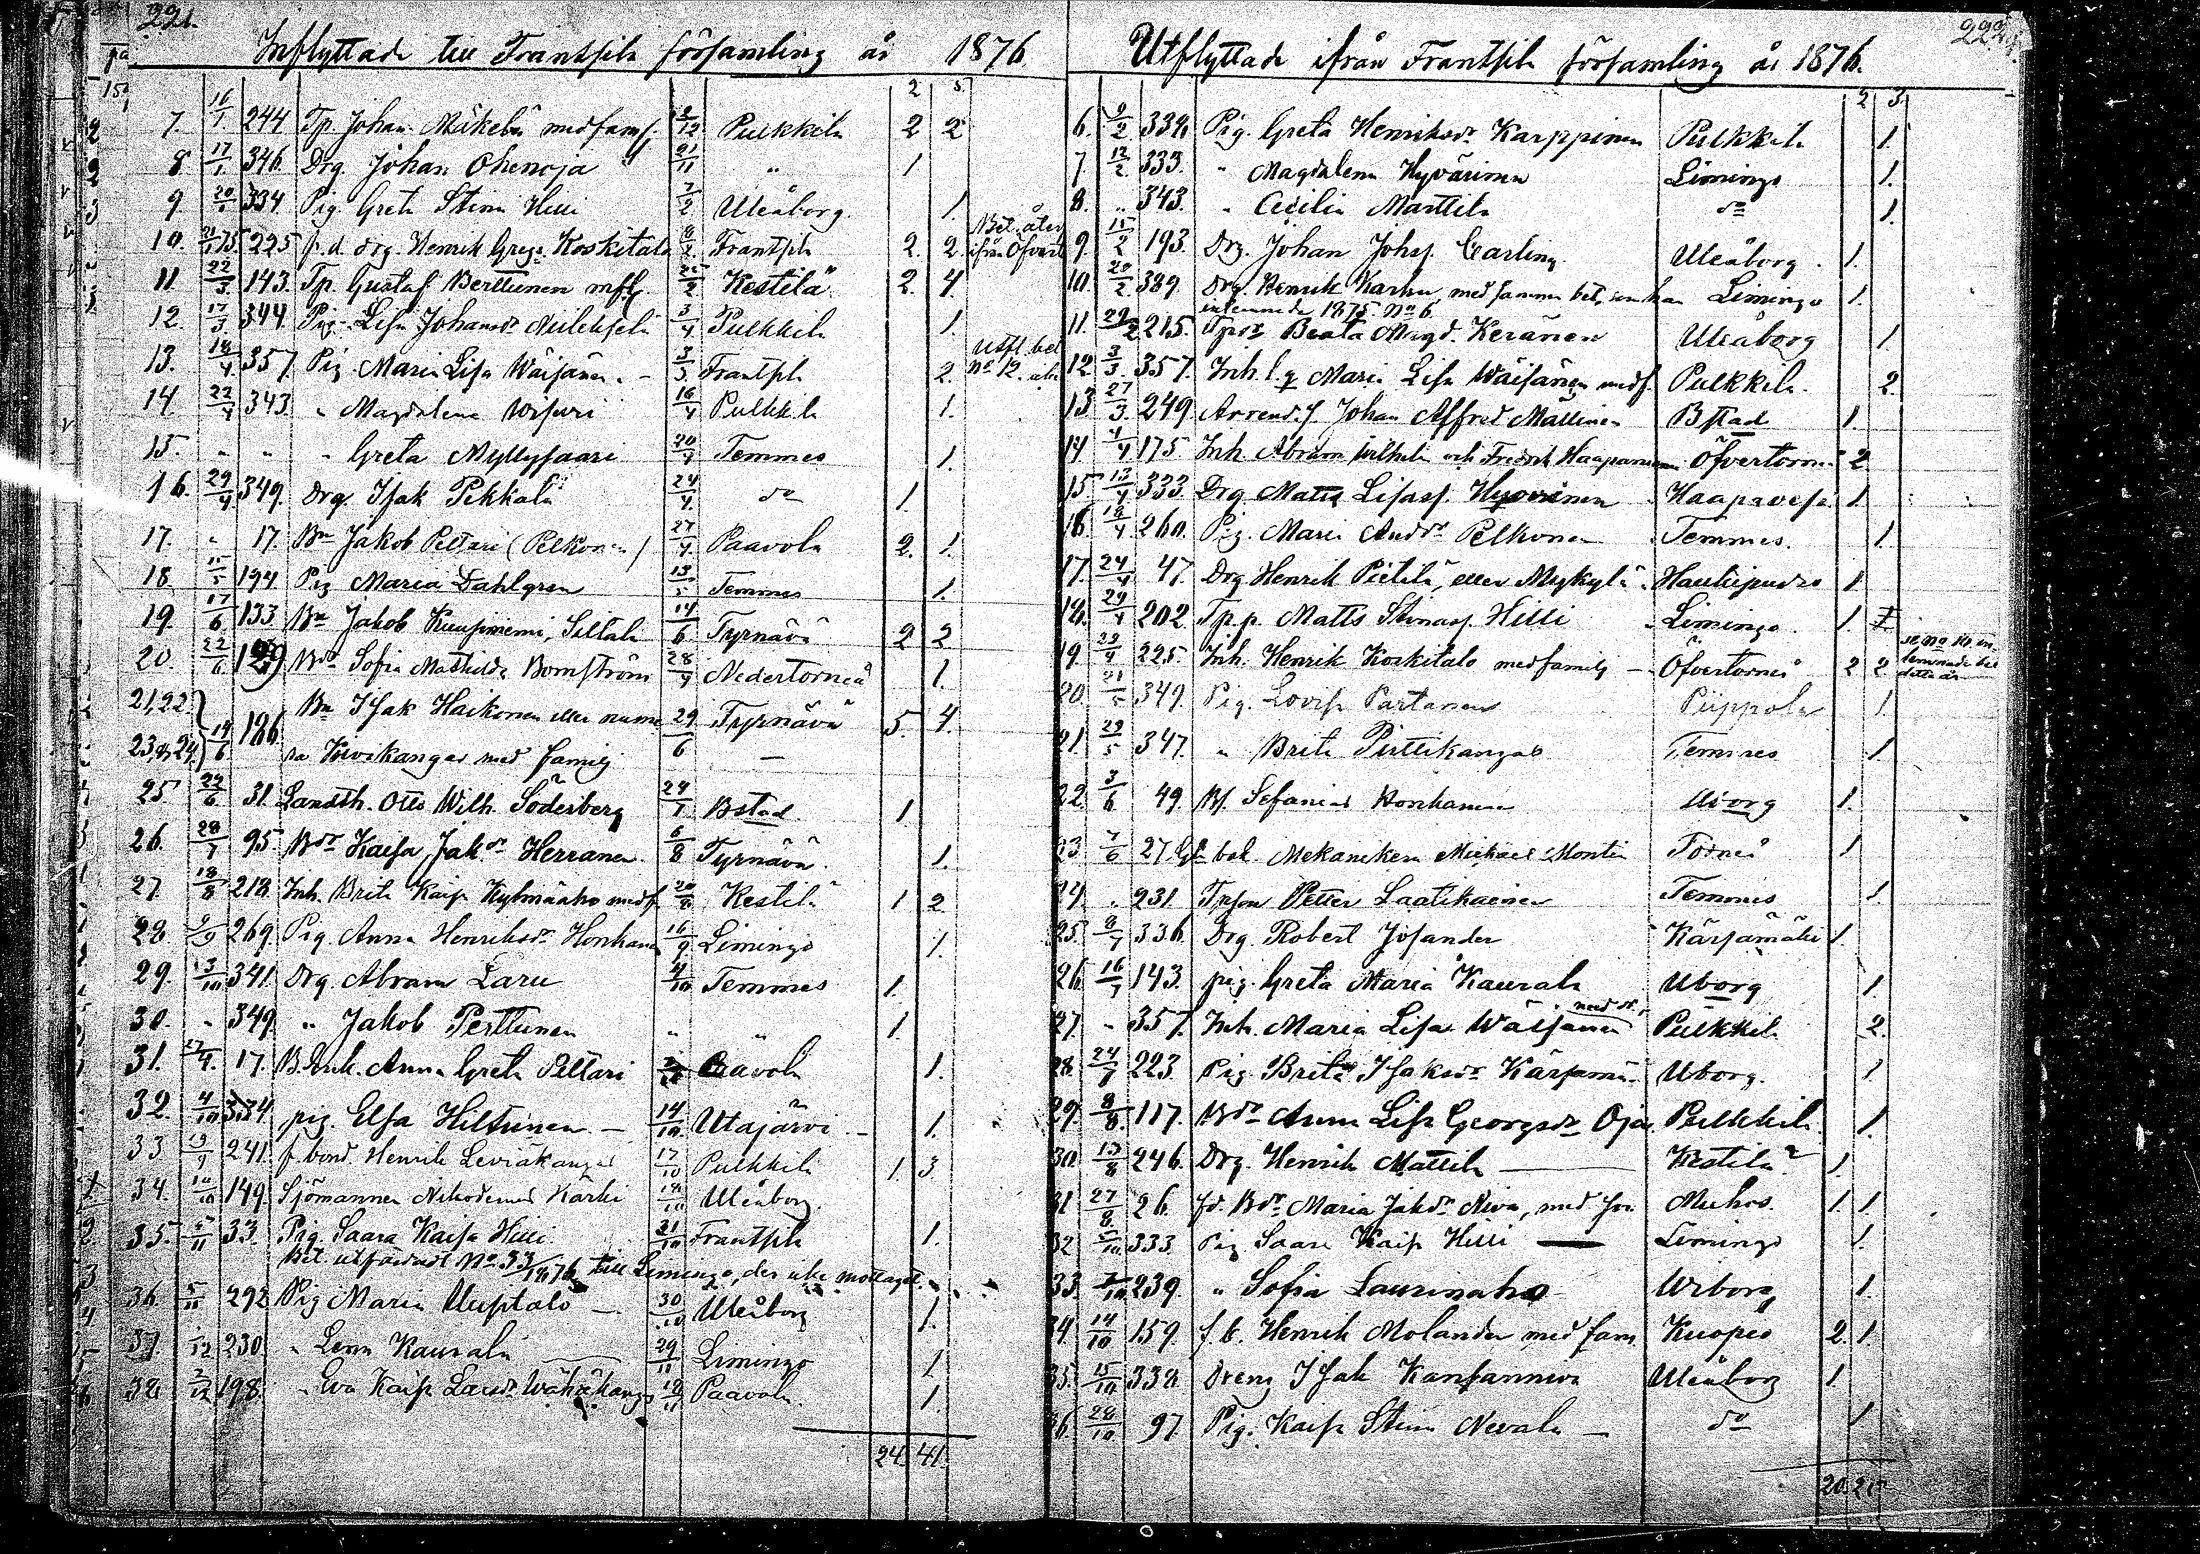 221.
Inflyttade till Frantsila församling år 1876
2 5
7. 16/1 244 Tp. Johan Mäkelä med famf. 2/12 Pulkkila 2 2
8. 17/1 346. Drg. Johan Ohenoja 21/11 " 1
9. 20/1 334. Pig. Greta Stina Hilli 7/2 Uleåborg. 1.
10. 225 f.d. drg. Henrik Koskitalo Frantsila 2. 2. Bet. åter ifrån Öfvert
11. 22/3 143. Tp. Gustaf Berttunen mfl. 2 Kestilä 2. 4.
12. 17/3 344. Pig. Lisa Johansdr 3/4 Pulkkila 1.
13. 18/4 357. Pig. Maria Lisa Wäisänen - 3/3 Frantsila 2. Utfl. bet No 12.
14. 22/4 343. " Magdalena Wisuri 16/4 Pulkkila 1.
15. " " " Greta Myllysaari 20/4 Temmes 1.
16. 29/4 349. Drg. Isak Pekkala 24/4 do 1.
17. " 17. Bn Jakob Peltari (Pelkonen) 27/4 Paavola 2. 1.
18. 15/5 194. Pig Maria Dahlgren 13/5 Temmes 1.
19. 17/6 133 Bn Jakob Kuusiniemi, Siltala 14/6 Tyrnävä 2 2
20. 22/6 129 Bdr Sofia Mathilda Bomström 28/4 Nedertorneå 1.
21, 22. Bn Isak Haikonen eller nume 29/6 Tyrnävä 5. 4.
23, & 24. 14/6 186. ra Kivikangas med familj —
25. 22/6 31. Landth. Otto Wilh. Söderberg 24/1 Bstad 1.
26. 28/7 95. Bdr Kaisa Jakdr Herranen 6/8 Tyrnävä. 1.
27. 18/8 218. Inh. Brita Kaisa Kylmäaho med f. 20/8 Kestilä 1 2
28. 9/9 269. Pig. Anna Henriksdr Honkanen 16/9 Limingo 1.
29. 3/10 341. Drg. Abram Laru 4/10 Temmes 1.
30. " 349. " Jakob Perttunen " " 1.
31. 27/9. 17. B. Enk. Anna Greta Peltari Paavola 1.
32. 4/10 334 pig. Elsa Hiltunen — 14/10. Utajärvi — 1.
33 241. f. bond. Henrik Leviäkangas 17/10 Pulkkila 1. 3.
34. 149. Sjömannen Nikodemus Kärki Uleåborg.
35. 5/11 33. Pig. Saara Kaisa Hilli 31/10 Frantsila 1.
Bet. utfärdadt No 33/1876 till Limingo, der icke mottaget.
36. 5/11 292 Pig Maria Uusitalo — 30/10 Uleåborg 1.
37. 230. " Lena Kaurala — 29/11 Limingo 1
38. 198. " Eva Kaisa Larsdr Paavola. 1.
24. 41.
222.
Utflyttade ifrån Frantsila församling år 1876.
2 3.
6. 9/2 332. Pig. Greta Henriksdr Karppinen Pulkkila 1.
7 12/2 333. " Magdalena Hyvärinen Limingo 1.
8. " 343. " Cecilia Marttila do 1.
9. 15/2 193. Drg. Johan Johss. Carling. Uleåborg. 1.
10. 20/2. 389. Drg. Henrik Karhu, med samma bet, som han Limingo 1.
inlemnade 1875 No 6.
11. 29/2 215. Tpdr Beata Magd. Keränen Uleåborg 1.
12 3/3 357. Inh. Maria Lisa Wäisänen med f. Pulkkila. 2.
13 27/3 249 Arrend. f. Johan Alfred Mällinen Bstad 1.
14 4/4 175. Inh Abram Wilhelm och Fredrik Haapaniemi Öfvertorneå 2
15. 13/4 333. Drg Matts Lisass. Hyvärinen Haapavesi 1.
16 18/4 260. Pig. Maria Andrdr Pelkonen Temmes. 1.
17. 24/4 47. Drg Henrik Pietilä, eller Mykylä Haukipudas 1.
18. 29/4 202 Tp. p. Matts Stinass. Hilli Limingo. 1. 1.
19. 29/4 225. Inh. Henrik Koskitalo med familj — Öfvertorneå 2 2 se No 10 in-lemnade bet detta år
20. 21/5 349. Pig. Lovisa Partanen Piippola 1.
21. 23/5 347. " Brita Pirttikangas Temmes 1
22. 3/6 49. Bs. Sefanias Honkanen Uborg 1.
23. 7/6 27. bal. Mekanikern Michael Montin Torneå 1
24. " 231. Tpson Petter Laatikainen Temmes 1.
25. 8/7 336. Drg. Robert Josander Kärsämäki 1.
26. 16/7 143. pig. Greta Maria Kaurala Uborg 1.
27. " 357. Inh. Maria Lisa Wäisänen med dr, Pulkkila 2.
28. 24/7 223. Pig. Brita Isaksdr Kärsämä Uborg. 1.
29. 8/8. 117. Bdr Anna Lisa Georgsdr Oja Pulkkila 1.
30. 13/8 246. Drg. Henrik Mattila — Kestilä 1.
31 27/8. 26. fd. Bdr Maria Jakdr Niva, med son Muhos. 1. 1.
32 333. Pig Saara Kaisa Hilli — Limingo 1.
33. 7/10 239. " Sofia Laurinaho Wiborg 1.
34. 14/10 159. f. b. Henrik Molander med fam. Kuopio 2. 1.
35. 15/10 338. Dreng Isak Kansanniva Uleåborg 1.
36. 28/10. 97. Pig. Kaisa Stina Nevala — do 1
20. 21